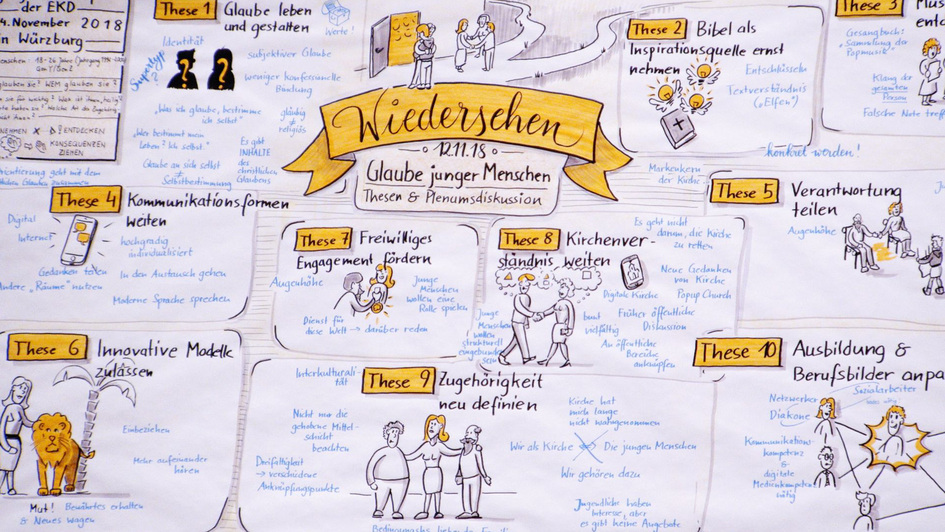 der EKD
4. November 2018
in Würzburg
These 1
Glaube leben
und gestalten
Werte!
Identität
Supertyp?
? ?
subjektiver Glaube
weniger konfessionelle
Bindung
"Was ich glaube, bestimme
ich selbst"
gläubig
≠
religiös
"Wer bestimmt mein
Leben? Ich selbst"
Es gibt
INHALTE
des
christlichen
Glaubens
Glaube an sich selbst
Selbstbestimmung
ENTDECKEN
KONSEQUENZEN
ZIEHEN
Wiedersehen
12.11.18
Glaube junger Menschen
Thesen & Plenumsdiskussion
These 2
Bibel als
Inspirationsquelle ernst
nehmen
Entschlüsseln
Textverständnis
("Elfen")
konkret werden!
Markenkern
der Kirche
These 3
Gesangbuch:
"Sammlung der
Popmusik"
Klang der
gesamten
Person
These 4
Kommunikationsformen
weiten
Digital
Internet
hochgradig
individualisiert
Gedanken teilen
Andere "Räume" nutzen
In den Austausch gehen
Moderne Sprache sprechen
These 5
Verantwortung
teilen
Augenhöhe
These 7
Freiwilliges
Engagement fördern
Augenhöhe
Junge
Menschen
wollen eine
Rolle spielen
Dienst für
diese Welt → darüber reden
These 8
Kirchenver-
ständnis weiten
Es geht nicht
darum, die Kirche
zu retten
Digitale Kirche
Neue Gedanken
von Kirche
Popup Church
Junge
Menschen
wollen
strukturell
eingebunden
sein
bunt
vielfältig
Früher öffentliche
Diskussion
An öffentliche
Bereiche
anknüpfen
These 6
Innovative Modelle
zulassen
Einbeziehen
Mehr aufeinander
hören
Mut! Bewährtes erhalten
& Neues wagen
These 9
Zugehörigkeit
neu definien
Interkulturali-
tät
Nicht nur die
gehobene Mittel-
schicht
beachten
Dreifaltigkeit
→ verschiedene
Anknüpfungspunkte
Kirche hat
mich lange
nicht wahrgenommen
Wir als Kirche
Die jungen Menschen
Wir gehören dazu
Jugendliche haben
Interesse, aber
es gibt keine Angebote
These 10
Ausbildung &
Berufsbilder anpa
Netzwerker
Diakone
Sozialarbeiter
Kommunikations-
kompetenz
&
digitale
Medienkompetenz
nötig